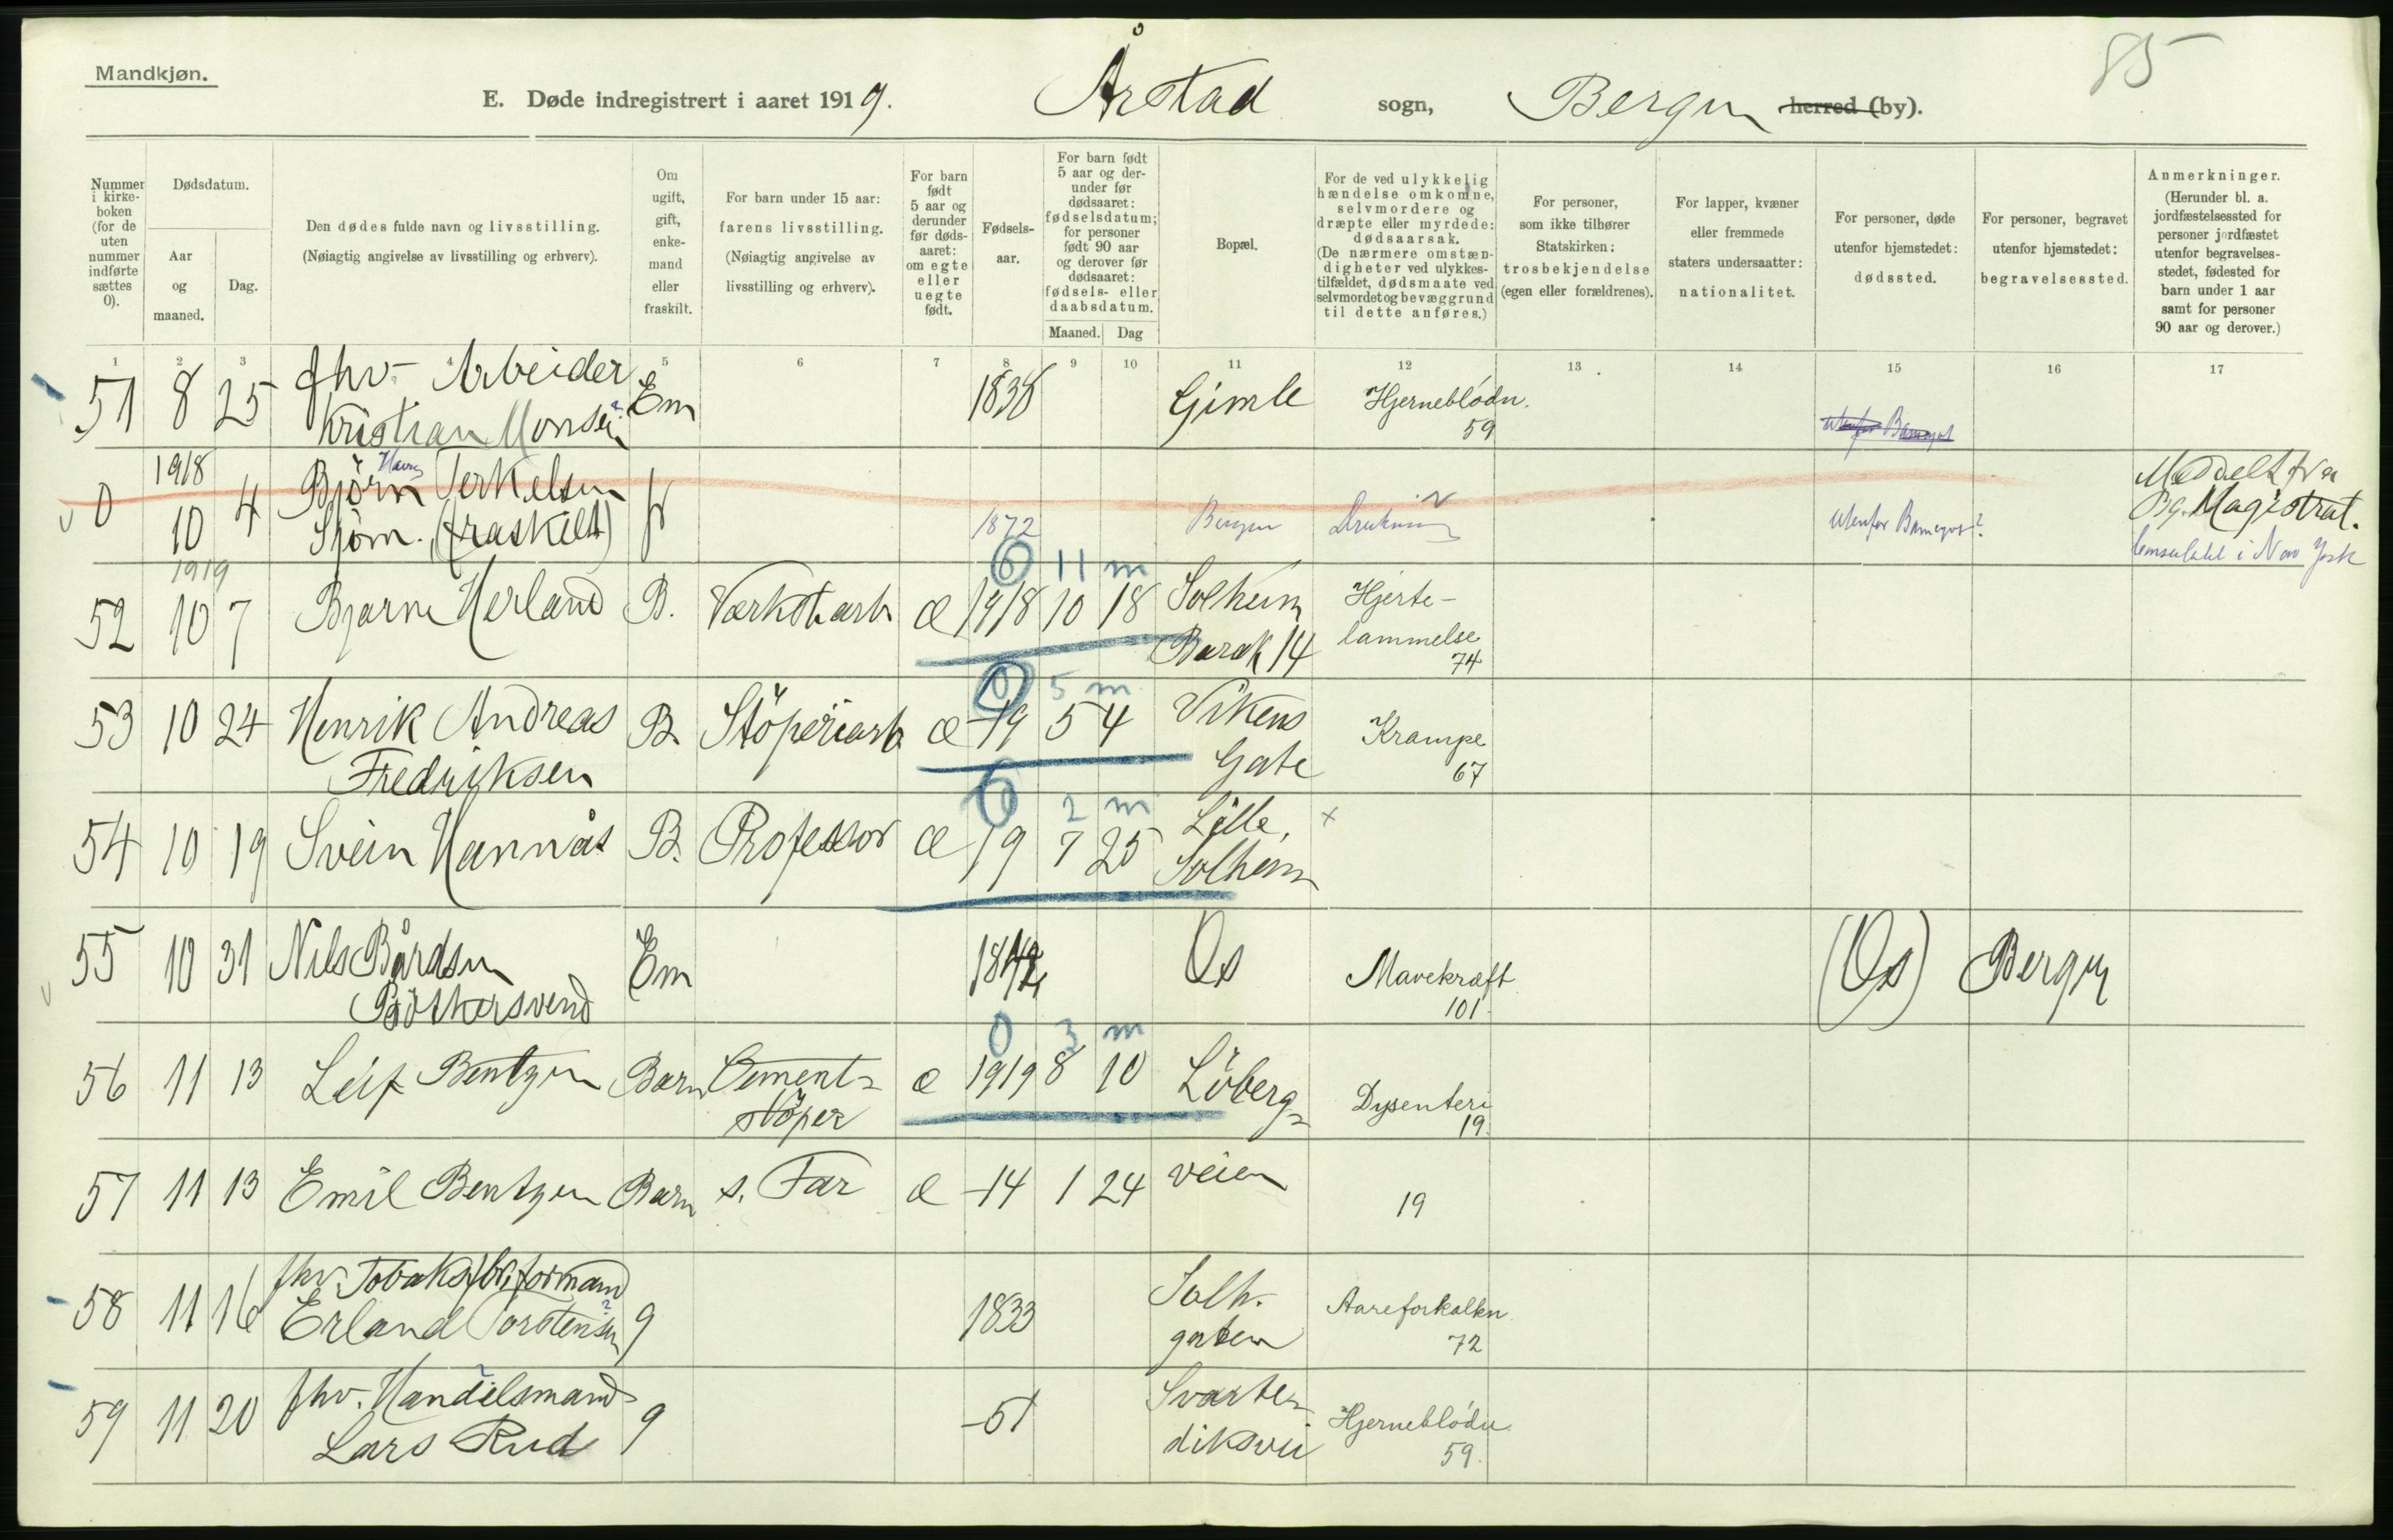 Mandkjøn.
85
E. Døde indregistrert i aaret 1919. Årstad sogn, Bergen herred (by).
Nummer i kirke-boken (for de uten nummer indførte sættes 0).
Dødsdatum.
Aar og maaned.
Dag.
Den dødes fulde navn og livsstilling.
(Nøiagtig angivelse av livsstilling og erhverv).
Om ugift, gift, enke-mand eller fraskilt.
For barn under 15 aar: farens livsstilling.
(Nøiagtig angivelse av livsstilling og erhverv).
For barn født 5 aar og derunder før døds-aaret: om egte eller uegte født.
Fødsels-aar.
For barn født 5 aar og der-under før dødsaaret: fødselsdatum; for personer født 90 aar og derover før dødsaaret: fødsels- eller daabsdatum.
Maaned. Dag
Bopæl.
For de ved ulykkelig hændelse omkomne, selvmordere og dræpte eller myrdede: dødsaarsak.
(De nærmere omstæn-digheter ved ulykkes-tilfældet, dødsmaate ved selvmordet og bevæggrund til dette anføres.)
For personer, som ikke tilhører Statskirken: trosbekjendelse (egen eller forældrenes).
For lapper, kvæner eller fremmede staters undersaatter: nationalitet.
For personer, døde utenfor hjemstedet: dødssted.
For personer, begravet utenfor hjemstedet: begravelsessted.
Anmerkninger.
(Herunder bl. a. jordfæstelsessted for personer jordfæstet utenfor begravelses-stedet, fødested for barn under 1 aar samt for personer 90 aar og derover.)
1 2 3 4 5 6 7 8 9 10 11 12 13 14 15 16 17
51 8 25 fhv. Arbeider Em 1838 Gimle Hjerneblødn.
Kristian Monsen 59
1918
0 10 4 Bjørn Terkelsen
Sjøm. (fraskilt) 1872 Bergen Drukning utenfor
Meddelt fra
Bg. Magistrat.
Consulatet i New York
1919
0 11 m
52 10 7 Bjarne Herland B. Værkst.arb. æ 1918 10 18 Solheim Hjerte-
Barak 14 lammelse
74
0 5 m
53 10 24 Henrik Andreas B. Støperiarb æ -19 5 4 Vikens Krampe
Fredriksen Gate 67
0 2 m
54 10 19 Svein Hannås B. Professor æ 19 7 25 Lille, x
Solheim
55 10 31 Nils Bårdsen Em Os Mavekræft (Os) Bergen
Bøtkersvend 101.
0 3 m
56 11 13 Leif Bentzen Barn Cement- æ 1919 8 10 Løberg- Dysenteri
støper 19.
57 11 13 Emil Bentzen Barn s. Far æ -14 1 24 veien 19
58 11 16 fhv. Tobaksfbr.formand g 1833 Solh. Aareforkalkn
Erland Torstensen gaten 72
59 11 20 fhv. Handelsmand g -51 Svarte- Hjerneblødn
Lars Rud diksvei 59.